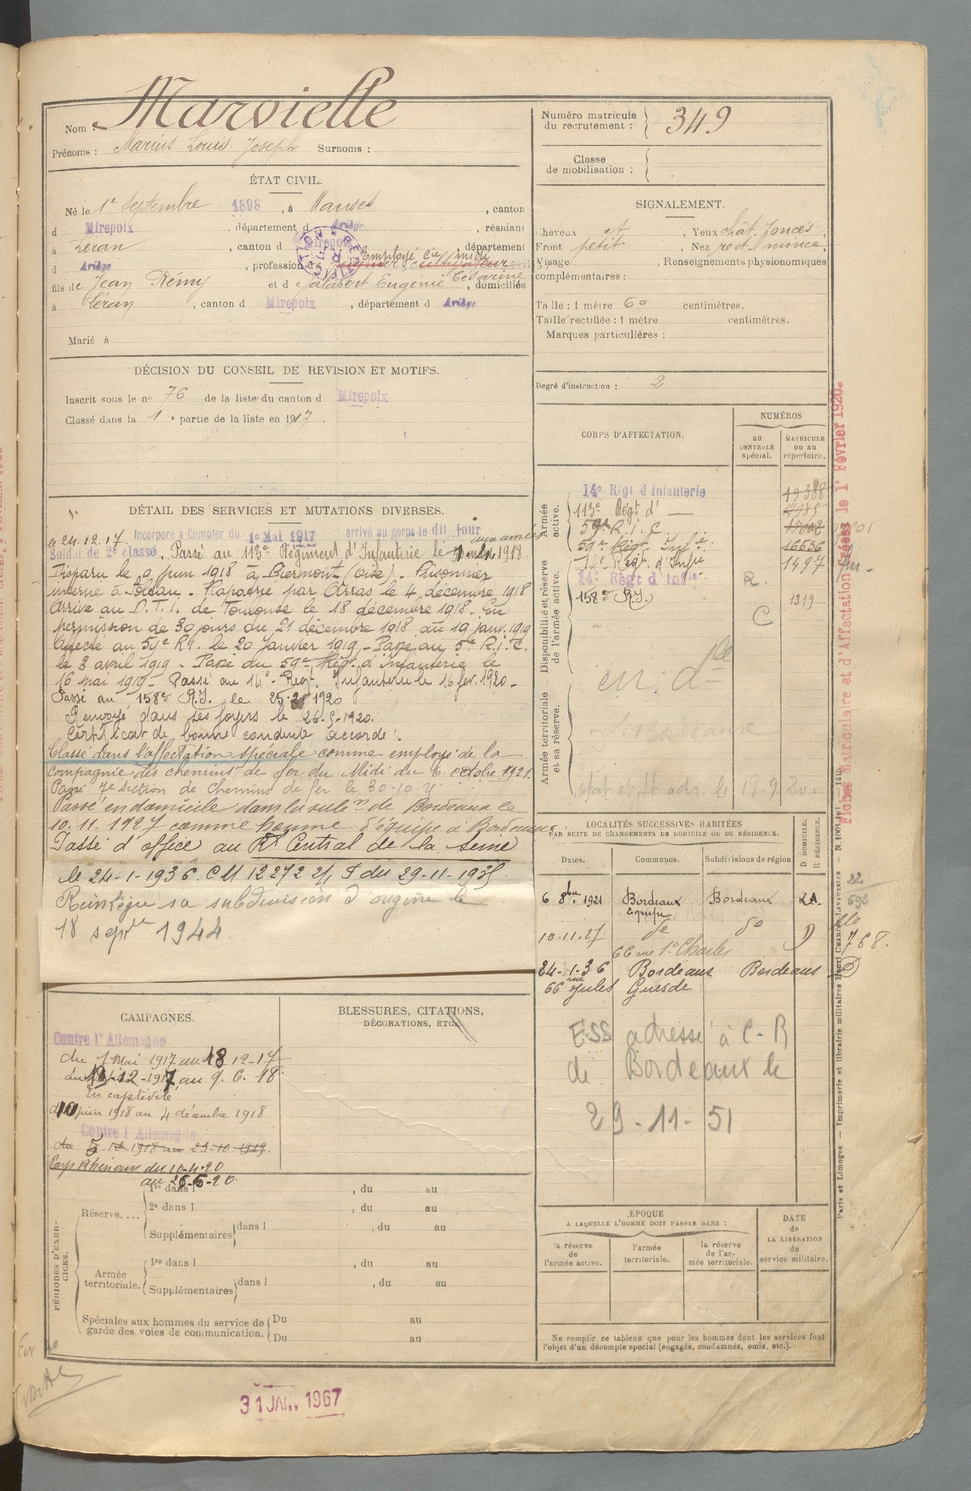 Nom : Marvielle
Prénoms : Marius Louis Joseph Surnoms :
Numéro matricule du recrutement : 349
Classe de mobilisation :
ÉTAT CIVIL.
Né le 1er Septembre 1898, à Manses, canton
d Mirepoix, département d Ariège, résidant
à Léran, canton d Mirepoix, département
d Ariège, profession Employé Cie midi cultivateur
fils de Jean Rémy et de Jalabert Eugénie Césarine, domiciliés
à Léran, canton d Mirepoix, département d Ariège
Marié à
SIGNALEMENT.
Cheveux Yeux chât. foncés
Front petit, Nez rect. mince,
Visage, Renseignements physionomiques
complémentaires :
Taille : 1 mètre 60 centimètres.
Taille rectifiée : 1 mètre centimètres.
Marques particulières :
Degré d'instruction : 2
DÉCISION DU CONSEIL DE REVISION ET MOTIFS.
Inscrit sous le no 76 de la liste du canton d Mirepoix
Classé dans la 1e partie de la liste en 1917.
DÉTAIL DES SERVICES ET MUTATIONS DIVERSES.
Incorporé à compter du 1er Mai 1917 arrivé au corps le dit jour
Soldat de 2e classe. Passé au 113e Régiment d'Infanterie le
le 24.12.17 aux armées
Disparu le 9 juin 1918 à Biermont (Oise). Prisonnier
interné à. Rapatrié par Arras le 4 décembre 1918
Arrivé au D.T.I. de Toulouse le 18 décembre 1918. En
permission de 30 jours du 21 décembre 1918 au 19 janv. 1919
Affecté au 59e RI. le 20 Janvier 1919. Passé au 5e R.I.C.
le 3 avril 1919. Passé du 59e Rég. d'Infanterie le
16 mai 1919. Passé au 14e Regt Infanterie le 16 fév. 1920.
Passé au 158e R.I. le 1920
Renvoyé dans ses foyers le 26.5.1920.
Certificat de bonne conduite accordé.
Classé dans l'affectation spéciale comme employé de la
Compagnie des chemins de fer du Midi du 6 octobre 1921.
Passé 7e Section de Chemins de fer le 30-10-
Passé en domicile dans la subon de Bordeaux le
10.11.1927 comme homme d'équipe à Bordeaux
Passé d'office au Rt Central de la Seine
le 24-1-1936. CM 12272 du 29-11-1935.
Réintègre sa subdivision d'origine le
18 septre 1944
CORPS D'AFFECTATION.
NUMÉROS
AU CONTRÔLE spécial.
MATRICULE OU AU répertoire.
Armée active.
14e Régt d'Infanterie 19388
113e Régt d° —
59e R.I.C.
59e Régt Infie 16636
Disponibilité et réserve de l'armée active.
14e Régt d'Infie 1497
14e Régt d'Infie R.
158e R.I. 1319
C
Armée territoriale et sa réserve.
en d
Fiches Matriculaire et d'Affectation le 1er Février 1920.
LOCALITÉS SUCCESSIVES HABITÉES
PAR SUITE DE CHANGEMENTS DE DOMICILE OU DE RÉSIDENCE.
Dates. Communes. Subdivisions de région. D DOMICILE. R RÉSIDENCE.
6 8bre 1921 Bordeaux Bordeaux
Equipe
10-11-27 do do D
66 rue St Charles
24-1-36 Bordeaux Bordeaux D
66 rue Jules Guesde
768.
ESS adressé à C-R
de Bordeaux le
29-11-51
CAMPAGNES.
Contre l'Allemagne
du 1 Mai 1917 au 18 12-17
du 19 12-1917 au 9.6.18
En captivité
du 10 juin 1918 au 4 décembre 1918
Contre l'Allemagne
du 5 12 1918 au 23-10-1919.
Pays Rhénans du 10-4-20
au 26-5-20
BLESSURES, CITATIONS, DÉCORATIONS, ETC.
PÉRIODES D'EXERCICES.
Réserve....
1re dans l , du au
2e dans l , du au
Supplémentaires dans l , du au
Armée territoriale.
1re dans l , du au
Supplémentaires dans l , du au
Spéciales aux hommes du service de garde des voies de communication.
Du au
Du au
ÉPOQUE
A LAQUELLE L'HOMME DOIT PASSER DANS :
la réserve de l'armée active.
l'armée territoriale.
la réserve de l'armée territoriale.
DATE de LA LIBÉRATION du service militaire.
Ne remplir ce tableau que pour les hommes dont les services font
l'objet d'un décompte spécial (engagés, condamnés, omis, etc.).
Paris et Limoges — Imprimerie et librairie militaires Henri CHARLES-LAVAUZELLE
31 JAN. 1967